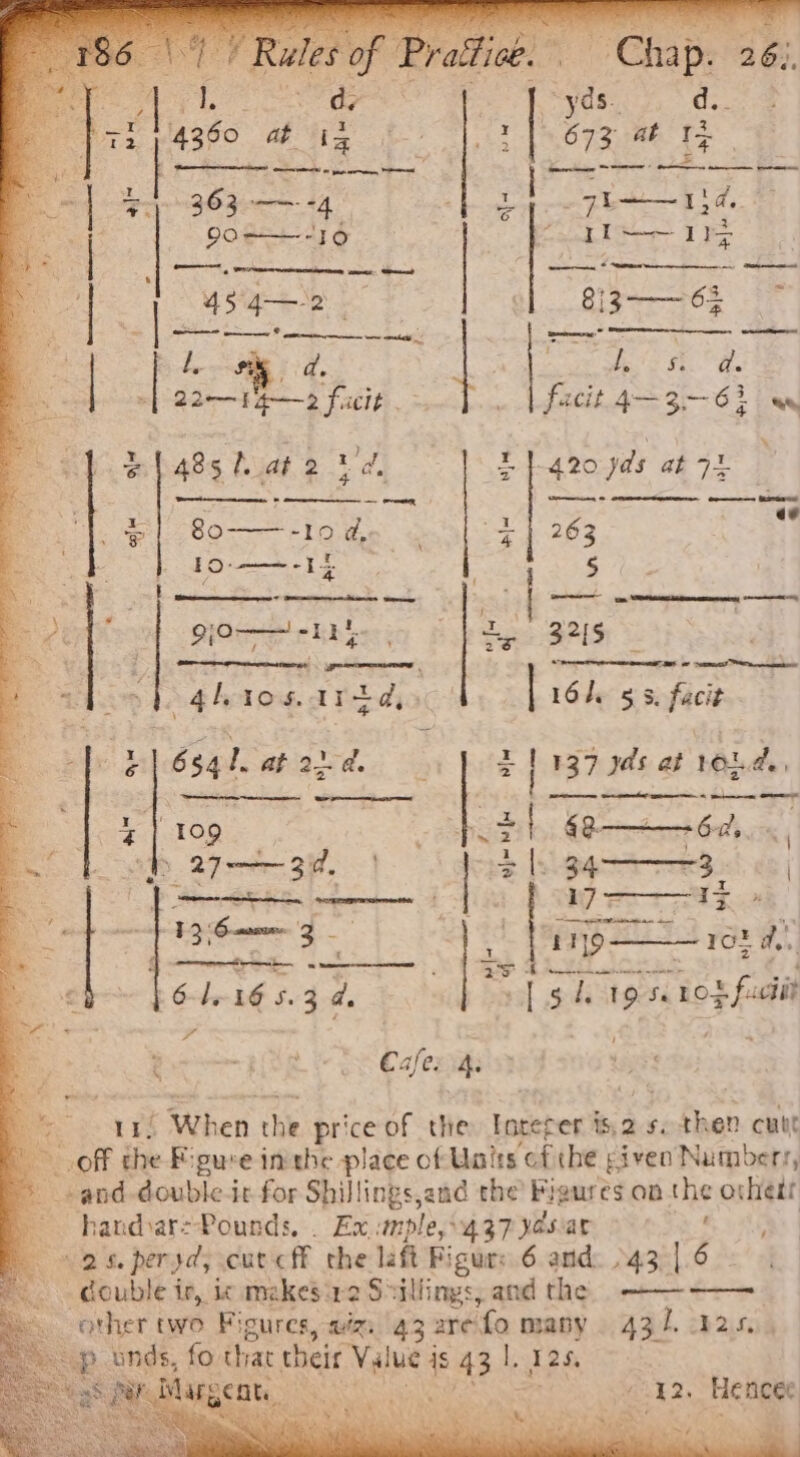 186 Rules of Practice. Chap. 26.
l. d.
1/12 | 4360 at 1 1/4
1/4 | 363-----4
90-----10
45 4---2
l. s. d.
22---14---2 facit
yds. d.
1/2 | 673 at 1 1/4
1/6 | 71-----1 1/2 d.
11-----11 3/4
8|3-----6 3/4
l. s. d.
facit 4---3.---6 3/4
1/6 | 485 l. at 2 1/4 d.
1/8 | 80-----10 d.
10-----1 1/4
9|0-----11 1/4
4 l. 10 s. 11 1/4 d.
1/2 | 420 yds at 7 1/4
1/4 | 263
5
1/20 32|5
16 l. 5 s. facit
1/6 | 654 l. at 2 1/2 d.
1/4 | 109
27-----3 d.
13|6----- 3
6 l. 16 s. 3 d.
1/2 | 137 yds at 10 1/2 d.
1/2 | 68-----6 d.
1/2 | 34-----3
17-----1 1/2
1/20 11|9-----10 1/2 d.
5 l. 19 s. 10 1/2 facit
Case. 4.
11. When the price of the Integer is 2 s. then cutt
off the Figure in the place of Units of the given Numberr,
and double it for Shillings, and the Figures on the otherr
hand are Pounds. Example, 437 yds at
2 s. per yd, cut off the last Figure 6 and 43 | 6
double it, it makes 12 Shillings, and the
other two Figures, viz. 43 are so many 43 l. 12 s.
pounds, so that their Value is 43 l. 12s.
as per Margent.
12. Hencee